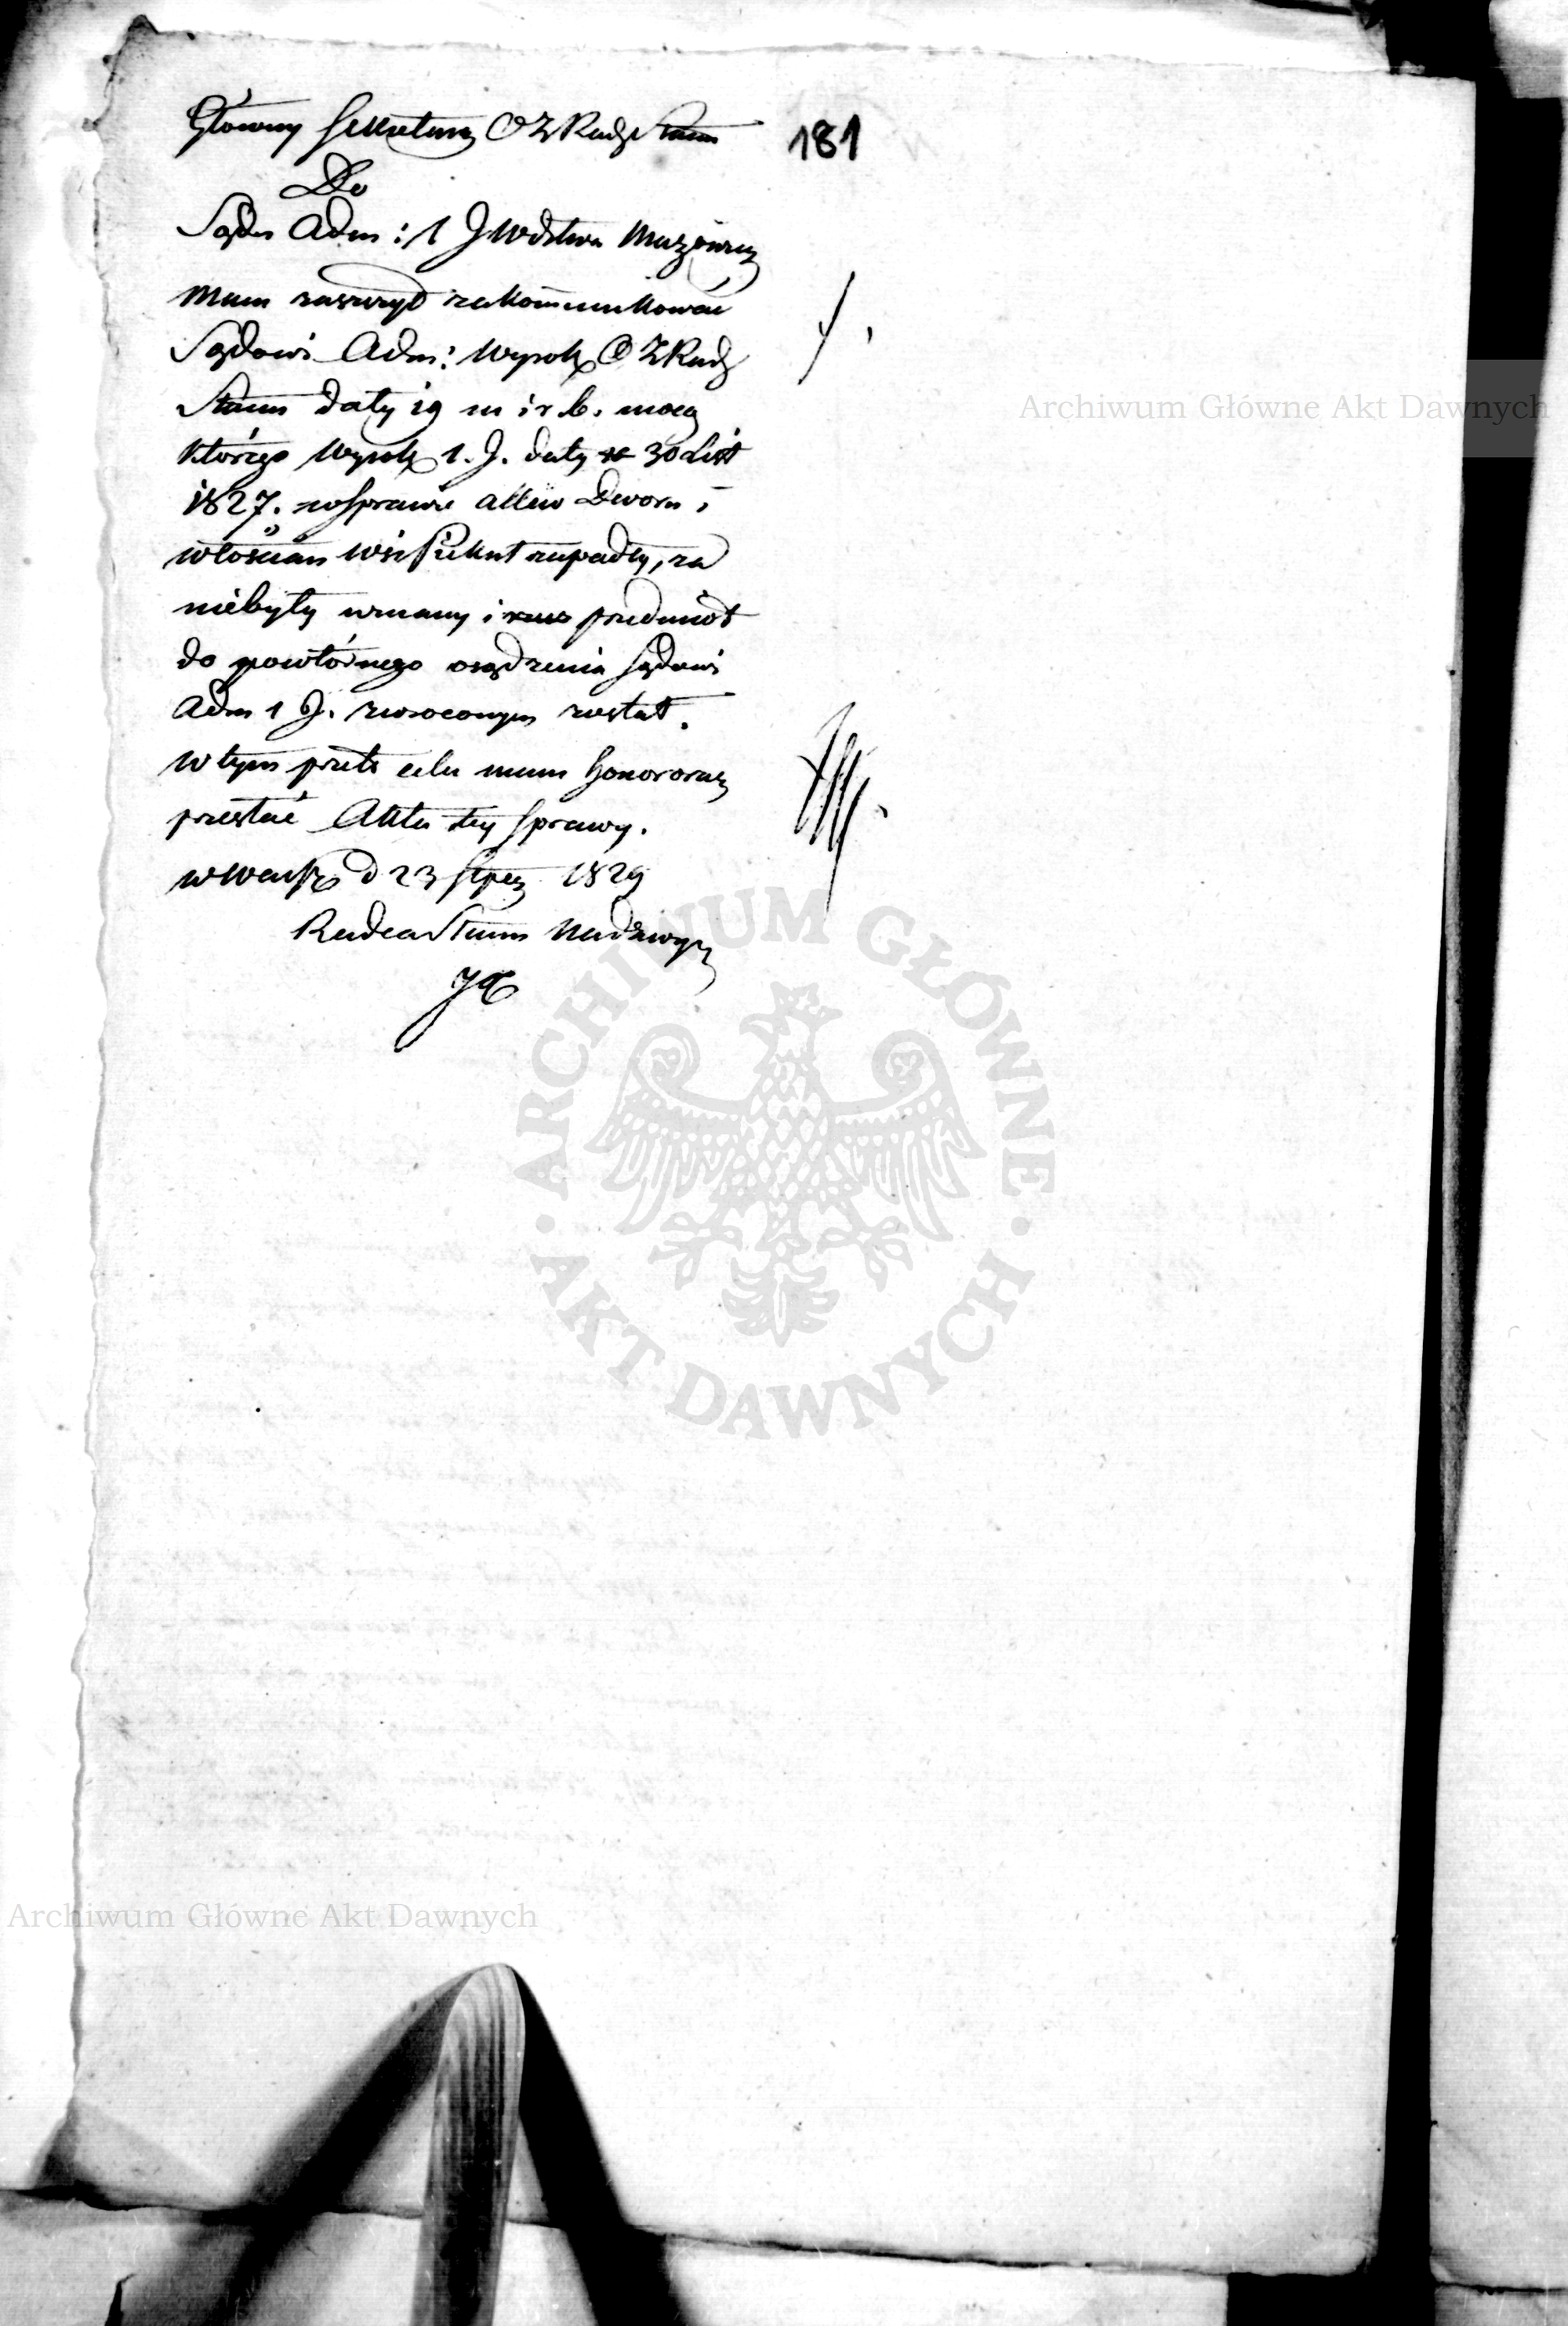 Główny Sekretarz O Z Rady Stanu
181
Do
Sądu Adm: 1 J Wdztwa Mazowiec
Mam zaszczyt zakommunikować
Sądowi Adm: Wyrok O Z Rady
Stanu daty 19 m i r. b. mocą
którego Wyrok 1. J. daty 30 List
1827. w sprawie attów Dworu i
włościan Wsi zapadły, za
niebyły uznany i przedmiot
do powtórnego osądzenia Sądowi
Adm 1 J. zwróconym został.
W tym przeto celu mam honor oraz
przesłać Akta tey sprawy.
w Warsz d 23 Stycz 1829
Radca Stanu Nadzwycz
Archiwum Główne Akt Dawnych
ARCHIWUM GŁÓWNE
· AKT DAWNYCH ·
Archiwum Główne Akt Dawnych